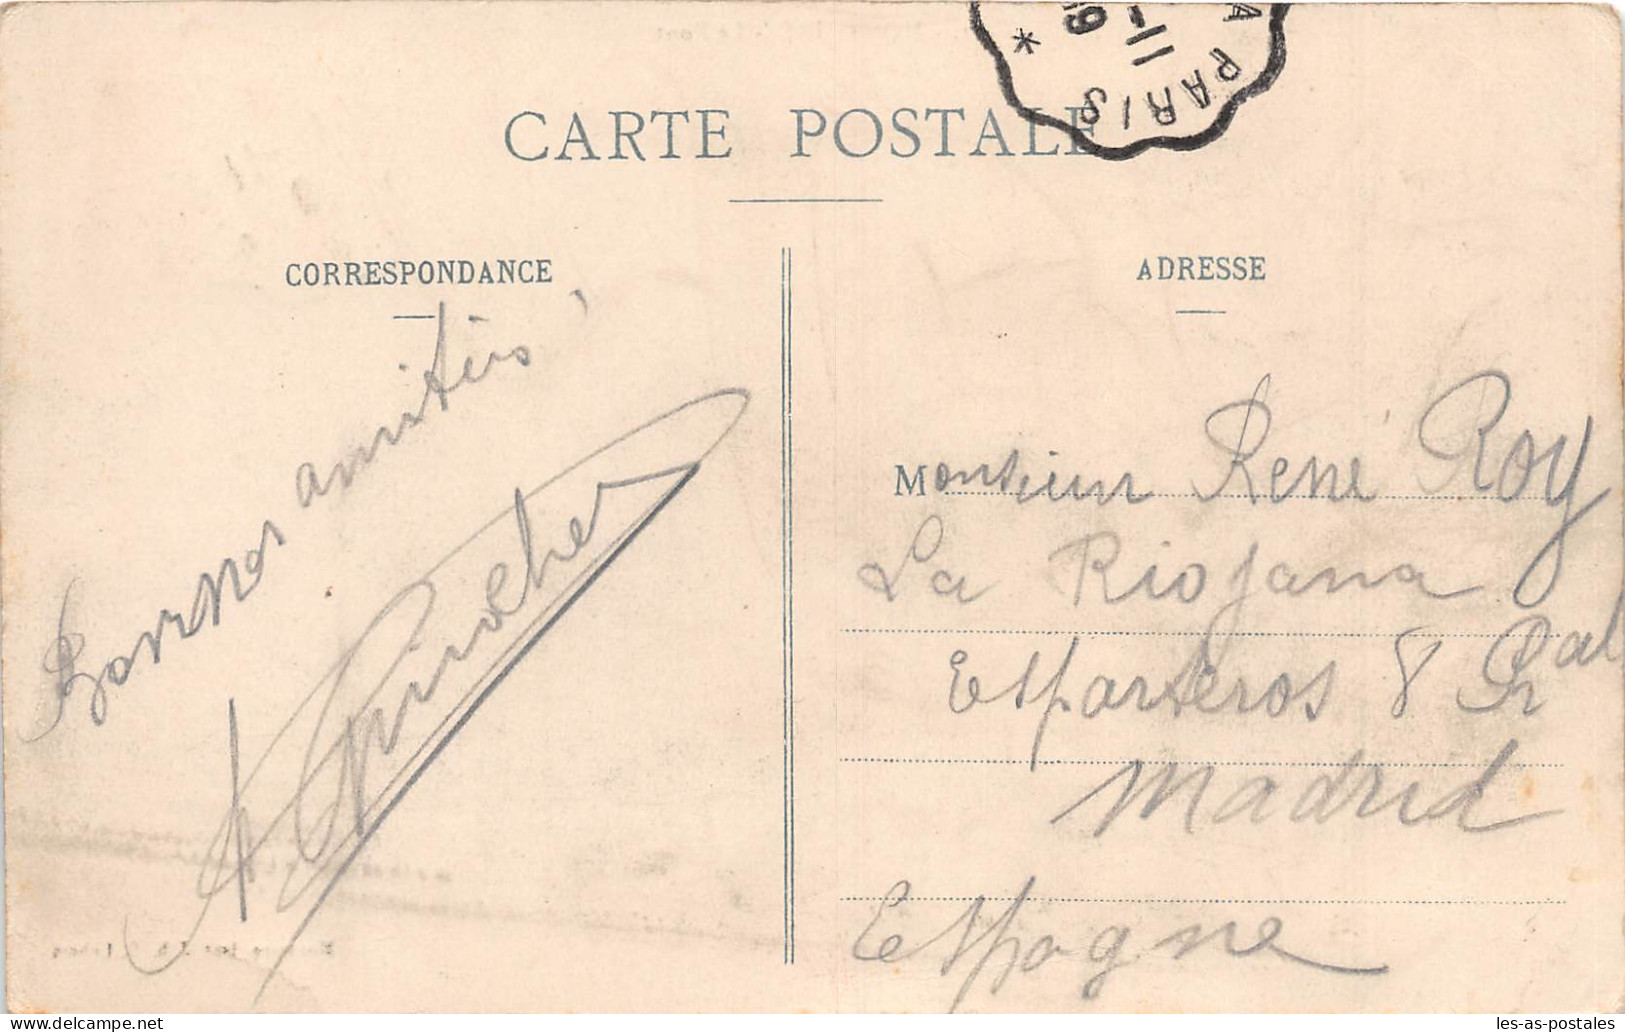 A PARIS *
11-
09
CARTE POSTALE
CORRESPONDANCE
ADRESSE
Bonnes amitiés
Monsieur René Roy
La Riojana
Esparteros 8 Pral
Madrid
Espagne
les-as-postales
delcampe.net